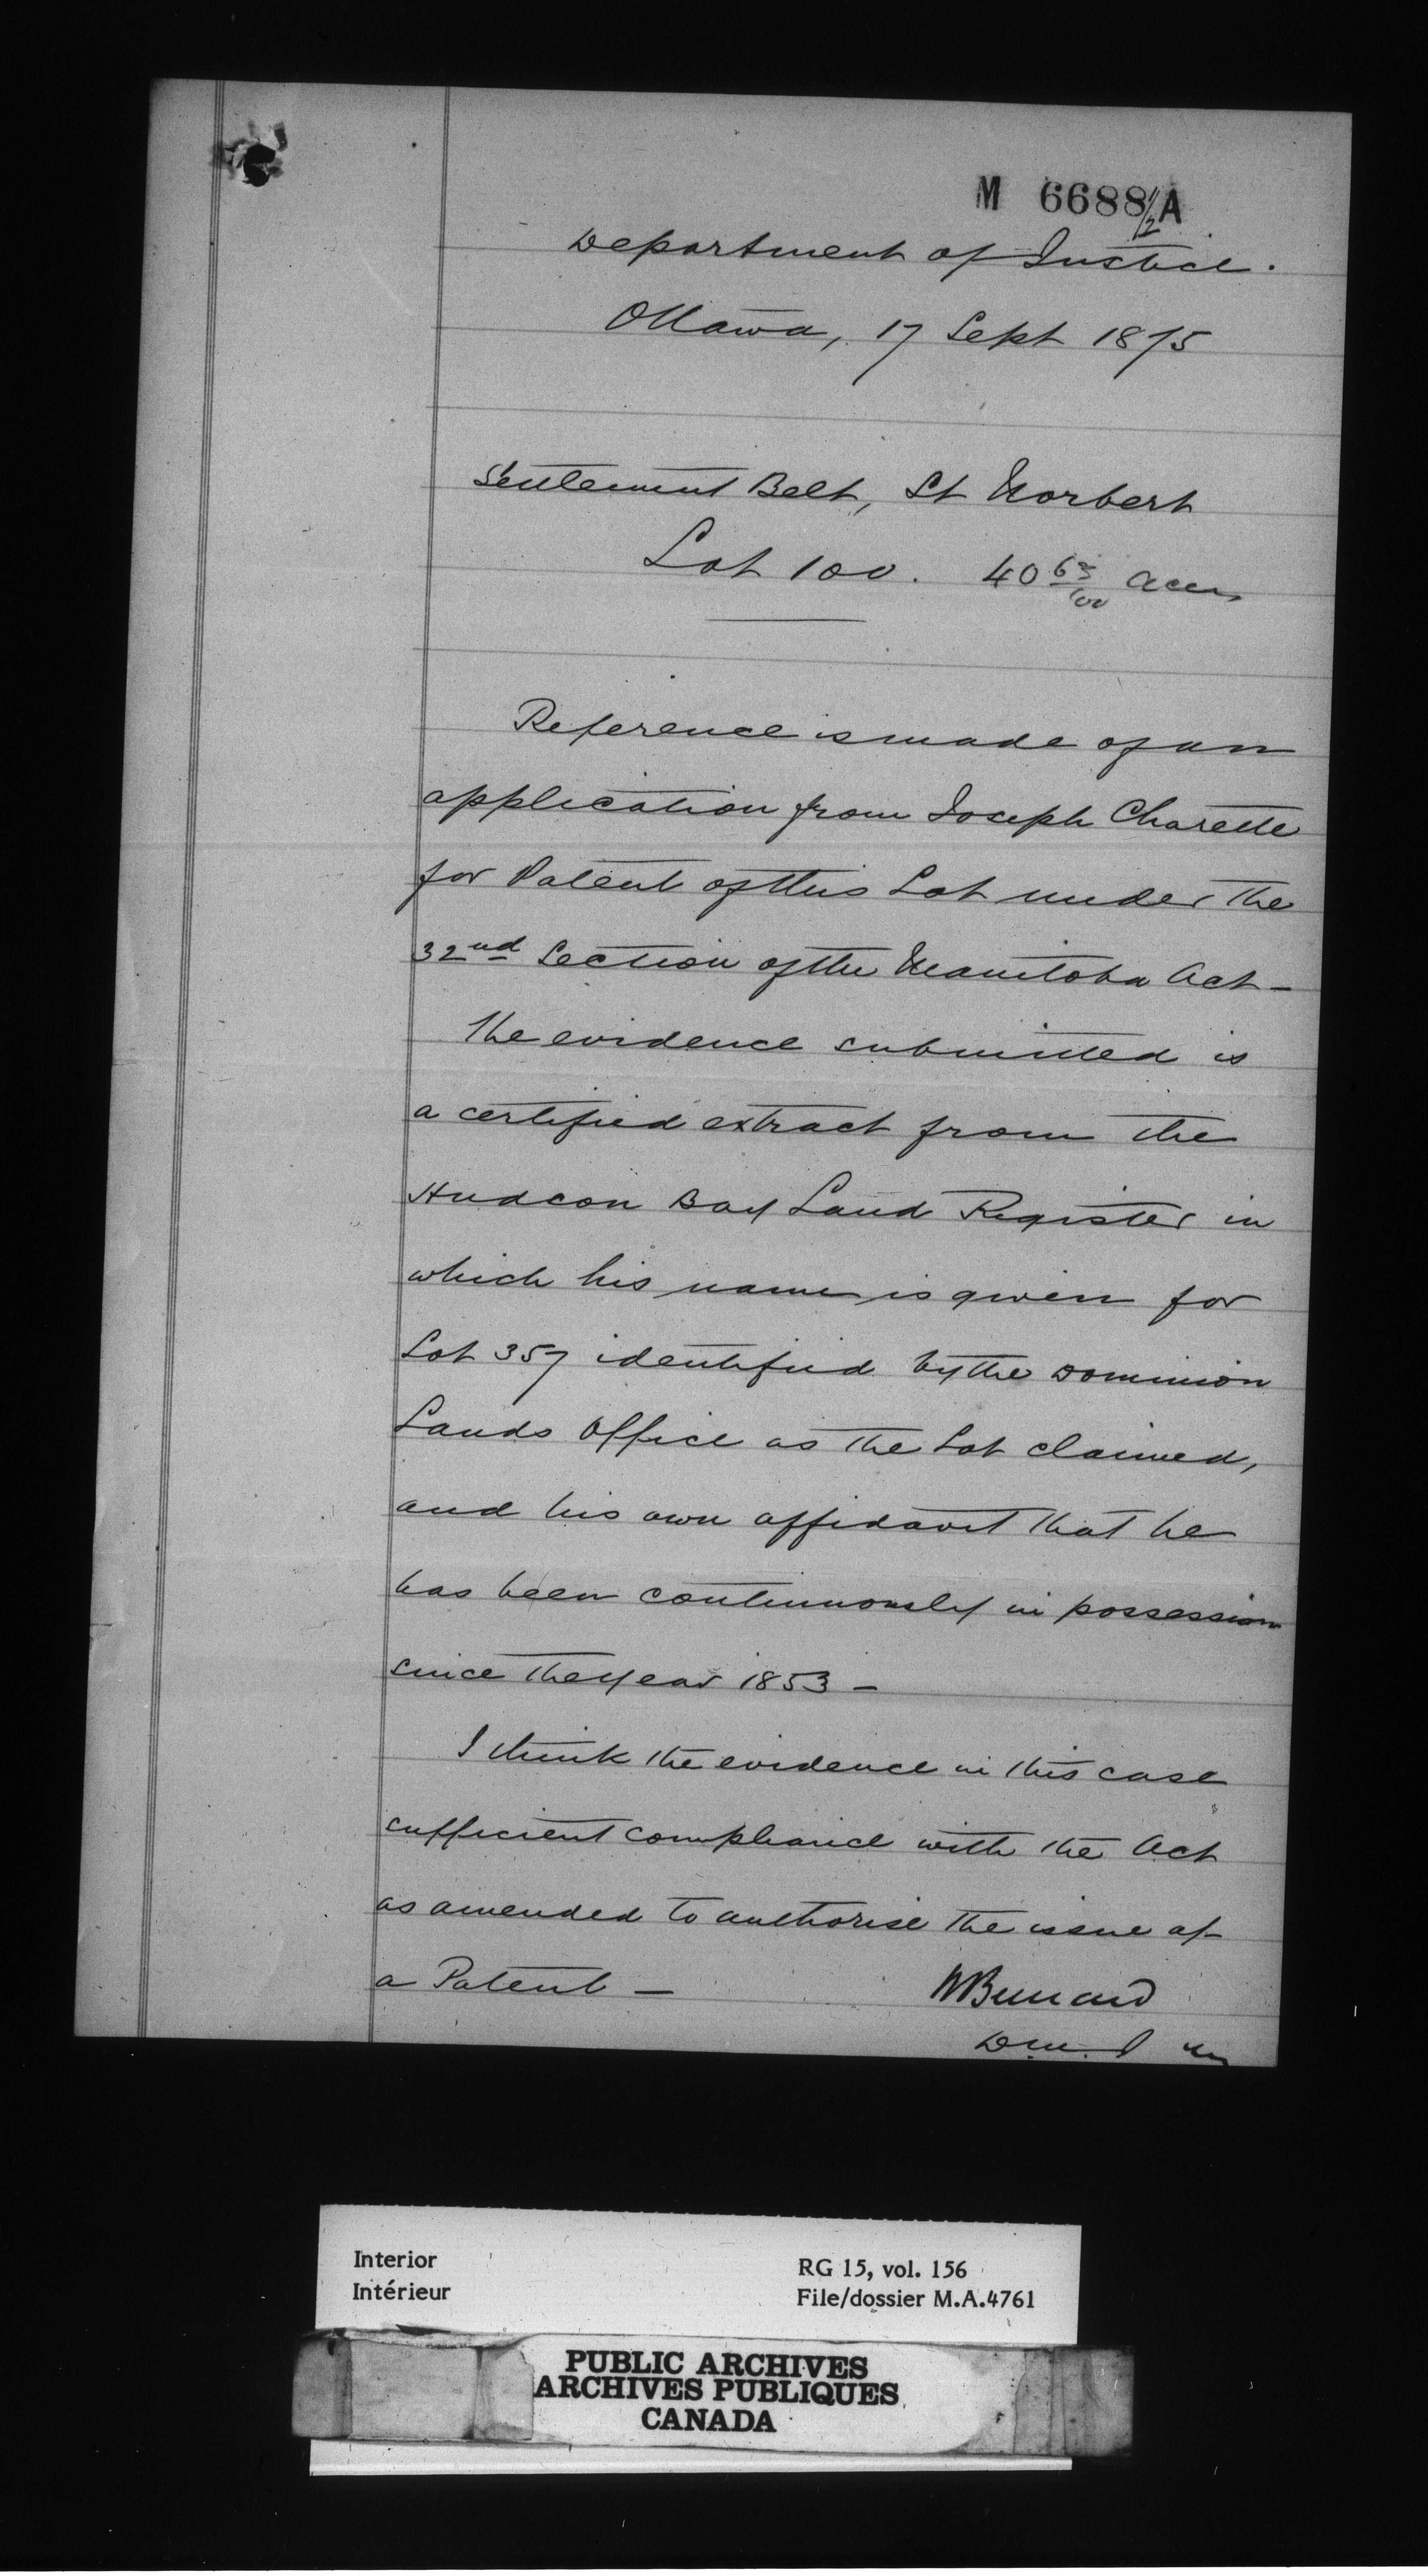 M 6688½A
Department of Justice.
Ottawa, 17 Sept 1875
Settlement Belt, St Norbert
Lot 100. 40 63/100 acres
Reference is made of an
application from Joseph Charette
for Patent of this Lot under the
32nd Section of the Manitoba Act -
The evidence submitted is
a certified extract from the
Hudson Bay Land Register in
which his name is given for
Lot 357 identified by the Dominion
Lands Office as the Lot claimed,
and his own affidavit that he
has been continuously in possession
since the year 1853 -
I think the evidence in this case
sufficient compliance with the Act
as amended to authorise the issue of
a Patent -
Bernard
Interior
Intérieur
RG 15, vol. 156
File/dossier M.A.4761
PUBLIC ARCHIVES
ARCHIVES PUBLIQUES
CANADA